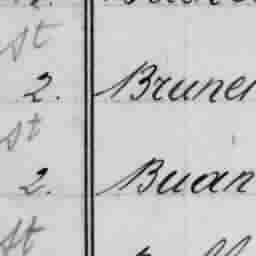 st
2. Brune
st
2. Buan
st